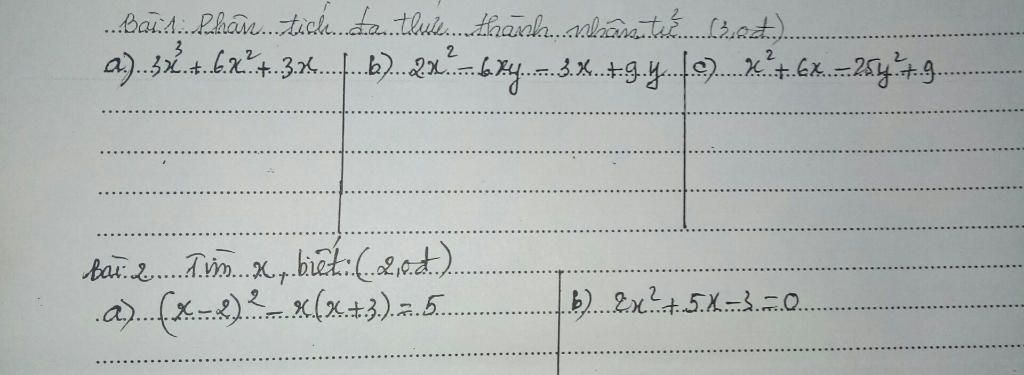 Bài 1: Phân tích đa thức thành nhân tử (3,0đ)
a) 3x³ + 6x² + 3x b) 2x² - 6xy - 3x + 9y c) x² + 6x - 25y² + 9
Bài 2 Tìm x, biết: (2,0đ)
a) (x-2)² - x(x+3) = 5 b) 2x² + 5x - 3 = 0